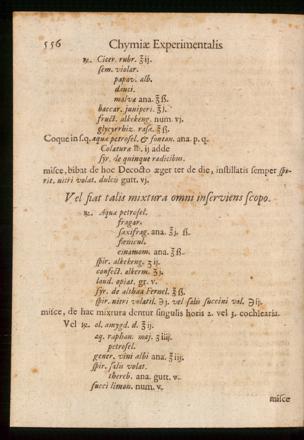 556 Chymiæ Experimentalis
℞. Cicer. rubr. ℥ij.
sem. violar.
papav. alb.
dauci.
malvæ ana. ℥ß.
baccar. juniperi. ʒj.
fruct. alkekeng. num. vj.
glycyrrhiz. rasæ. ℥ß.
Coque in s.q. aquæ petrosel. & fontan. ana. p. q.
Colaturæ ℔. ij adde
syr. de quinque radicibus.
misce, bibat de hoc Decocto æger ter de die, instillatis semper spi-
rit. nitri volat. dulco gutt. vj.
Vel fiat talis mixtura omni inserviens scopo.
℞. Aquæ petrosel.
fragar.
saxifrag. ana. ℥j. ß.
fœnicul.
cinamom. ana. ℥ß.
spir. alkekeng. ʒij.
confect. alkerm. ʒj.
laud. opiat. gr. v.
syr. de althæa Fernel. ℥ß.
spir. nitri volatil. ℈j. vel salis succini vol. ℈ij.
misce, de hac mixtura dentur singulis horis 2. vel 3. cochlearia.
Vel ℞. ol. amygd. d. ℥ij.
aq. raphan. maj. ℥iiij.
petrosel.
gener. vini albi ana. ℥iij.
spir. salis volat.
thereb. ana. gutt. v.
succi limon. num. v.
misce